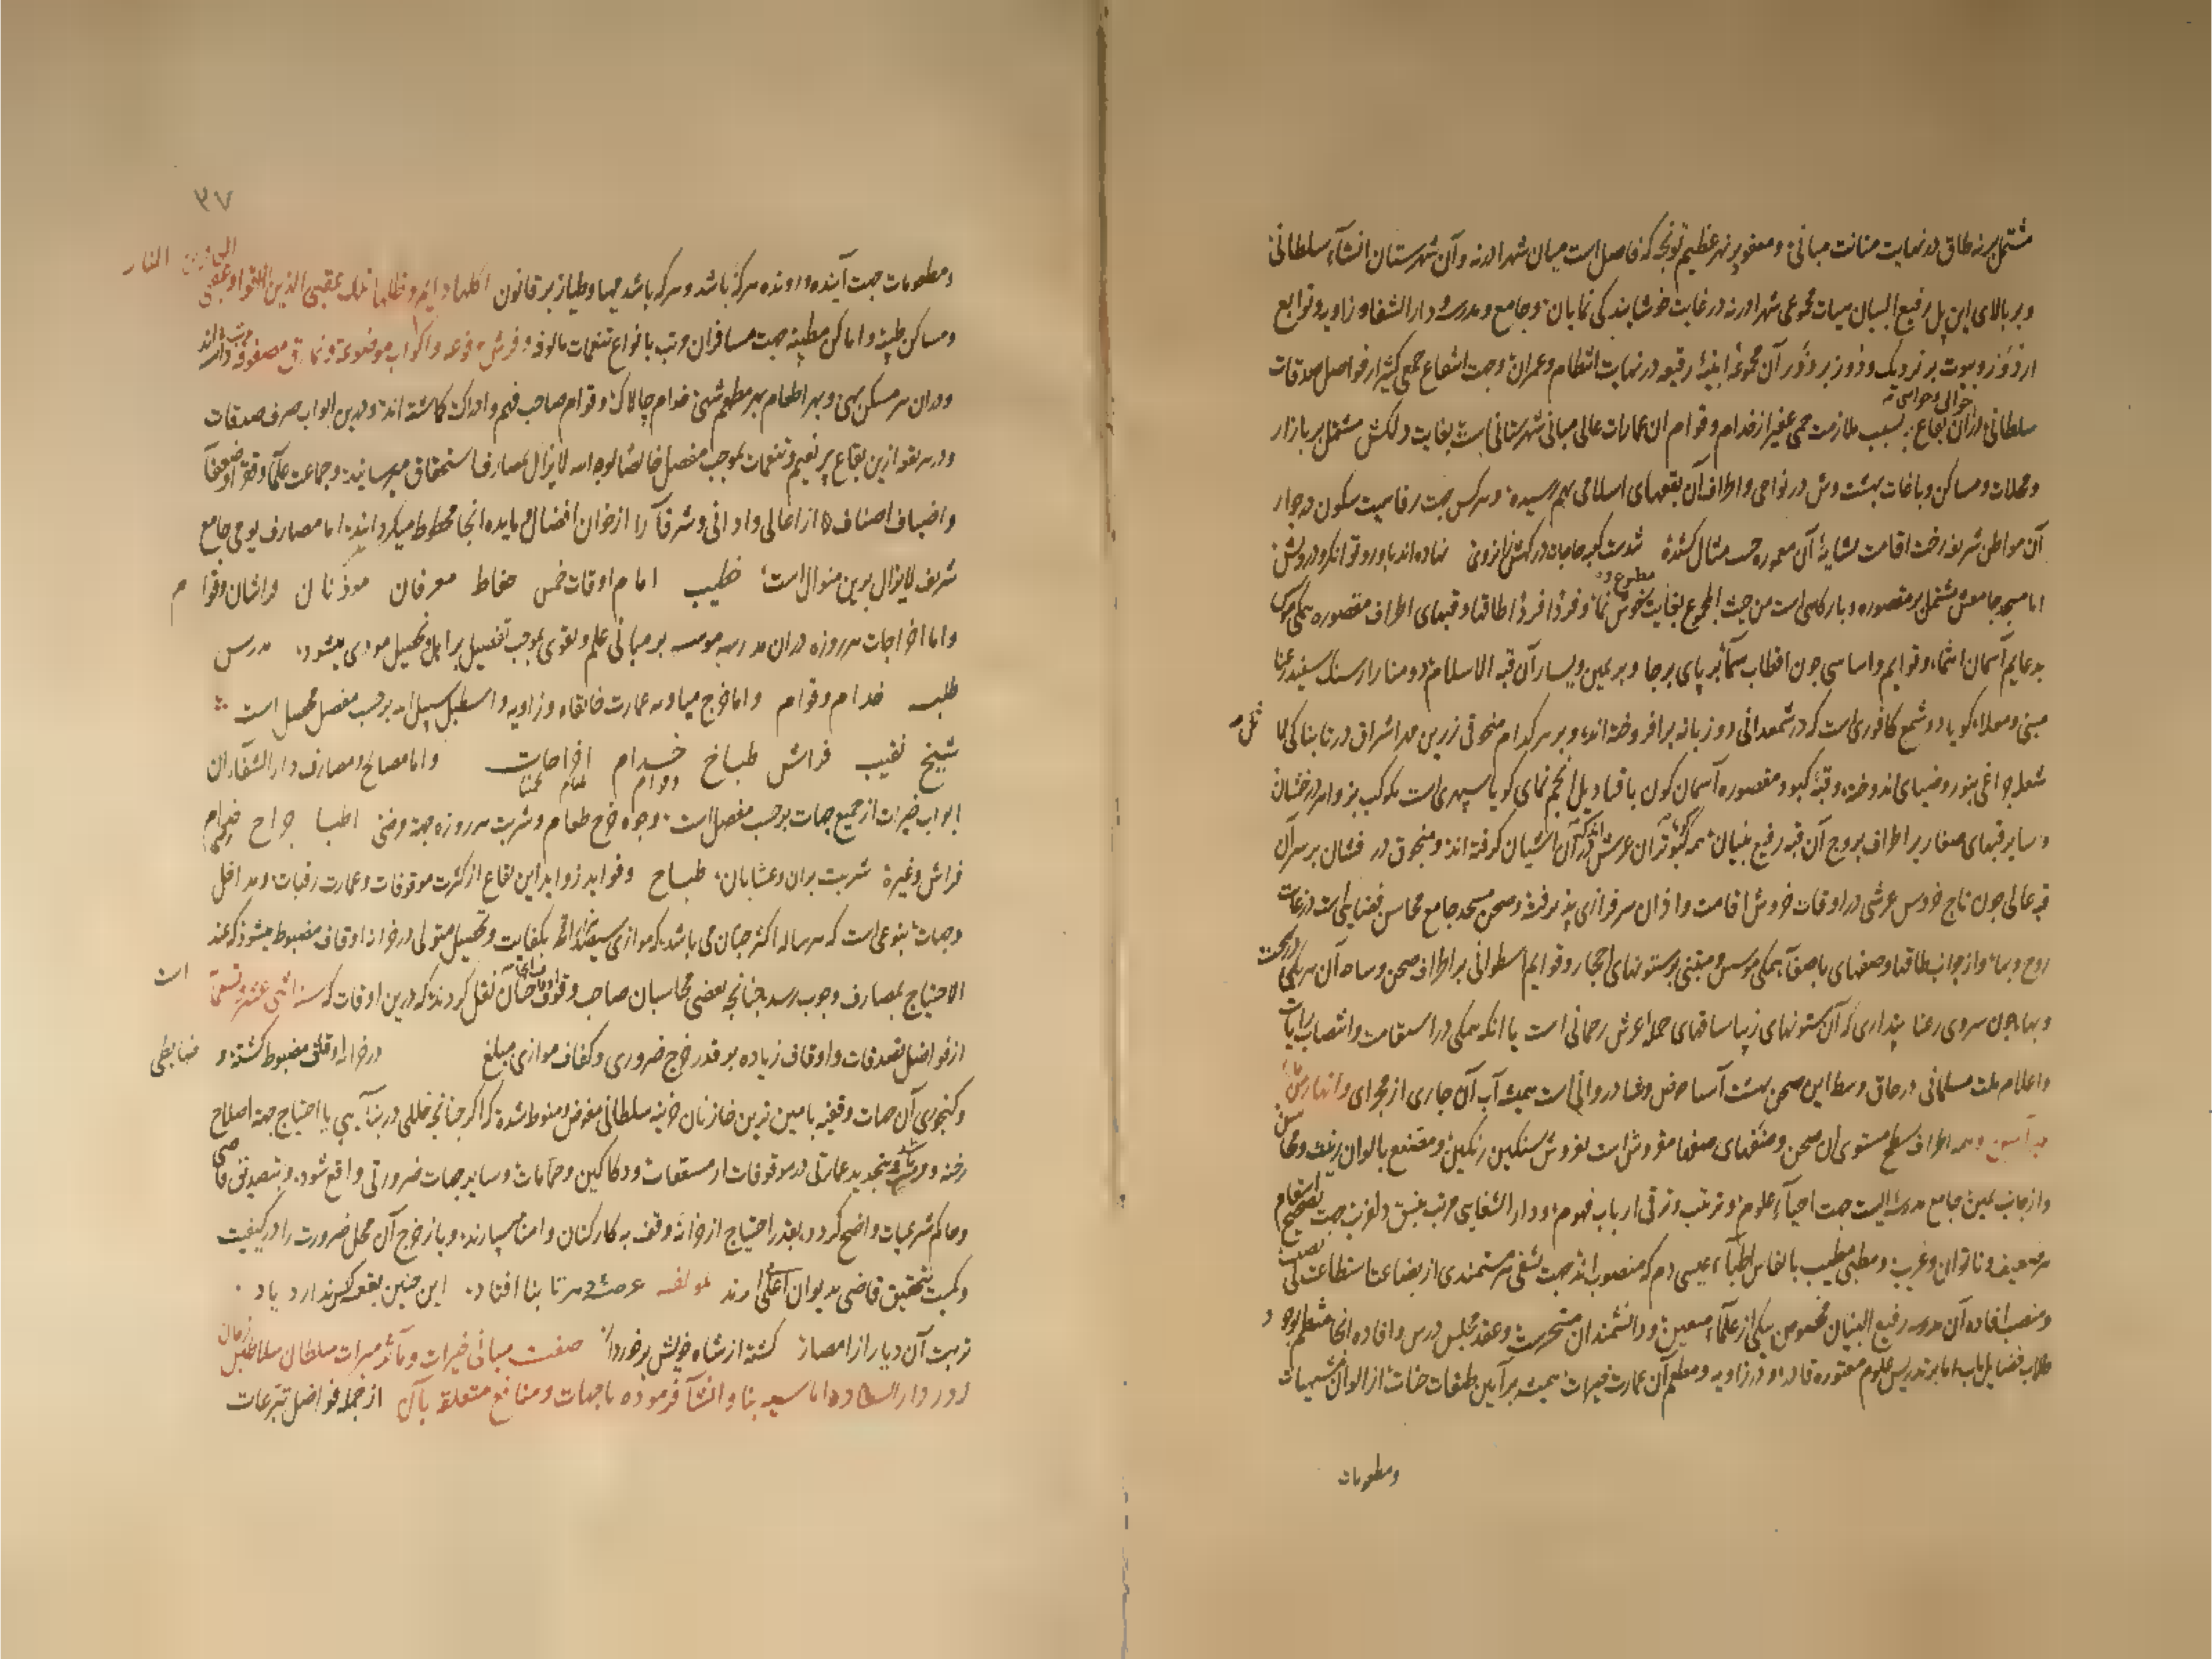 مشتمل بر نه طاق در نهایت متانت مبانی و معبر بر نهر عظیم تونجه که فاصل است میان شهر ادرنه و آن شهرستان انشآء سلطانی
و بر بالای این پل رفیع البنیان هیات مجموعی شهر ادرنه در غایت خوشایندکی نمایان و جامع و مدرسه و دار الشفا و زاویه و توابع
از دور و بیوت بر نزدیک و دور بر دور آن مجموعۀ ابنیۀ رفیعه در نهایت انتظام و عمران و جهت انتفاع جمعی کثیر از فواضل صدقات
سلطانی در آن بقاع بسبب ملازمت جمعی غفیر از خدام و قوام ان عمارات عالی مبانی شهرستانی است بغایت دلکش مشتمل بر بازار
حوالی و حواشی
و محلات و مساکن و باغات بهشت وش در نواحی و اطراف آن بقعهای اسلامی بهم رسیده و هر کس جهت رفاهیت سکون در جوار
آن مواطن شریف رخت اقامت بسایۀ آن معموره کشیده
اما مسجد جامعش مشتمل بر مقصوره و بارکاهی است من حیث المجموع بغایت خوش نما و فردا فردا طاقها و قبهای اطراف مقصوره همکی
مطبوع و
بدعایم آسمان انتماء و قوایم و اساسی چون اقطاب سمآ بر پای بر جا و بر یمین و یسار آن قبه الاسلام دو منار از سنک سفید رعنا
مبنی و معلا کویا دو شمع کافوری است که در شمعدانی دو زبانه بر افروخته اند و بر سر هر کدام منجوقی زرین
شعله چراغی بنور و ضیای اندوخته و قبۀ کبود مقصوره آسمان کون با قنادیل انجم نمای کویا سپهری است بکوکب درخشان
و سایر قبهای صغار بر اطراف بروج آن قبه رفیع بنیان همه کبوتران عرش در آن آشیان کرفته اند و منجوق در فشان بر سر آن
قبه عالی چون تاج خروس عرشی در اوقات خروش اقامت و اذان سر فرازی پذیرفته و صحن مسجد جامع محاسن فضایلی است در غایت
روح و بها و از جوانب طاقها و صفهای با صفا همکی مؤسس و مبتنی بر ستونهای احجار و قوایم اسطوانی بر اطراف صحن و ساحه آن هر یکی
و بها چون سروی رعنا پنداری که آن ستونهای زیبا ساقهای حملۀ عرش رحمانی است یا انکه همکی در استقامت و انتصاب رایات
و اعلام ملت مسلمانی در حاق وسط این صحن بهشت آسا حوض و شادروانی است همیشه آب آن جاری از مجرای و انهار من
و همه اطراف سطح مستوی ان صحن و صفها مفروش است بفروش سنکین رنکین و مقنع بالوان زینت و محا
و از جانب یمین جامع مدرسه ایست جهت احیآء علوم و ترتیب و ترقی ارباب فهوم و دار الشفایی مرتب بنسق دلفریب جهت تصحیح
هر ضعیف و ناتوان و غریب و مطبی مطیب بانفاس اطبآء عیسی دم که منصوب اند جهت تشفی هر مستمندی از بضاعت استطاعت
و منصب افاده آن مدرسه رفیع البنیان مخصوص بیکی از علمآء متعین و دانشمندان متبحرست و عقد مجلس درس و افاده انجا منتظم بوجود
طلاب فضایل ماب اما بر تدریس علوم مقتدر و قادر و در زاویه و مطعم آن عمارت خیرات همیشه بر آیین طبقات جنات از الوان مشتهیات
و مطعومات
۳۷
و مطعومات جهت آینده و رونده هر که باشد و هر که باشد مهیا و طیار بر قانون اکلها دایم و ظلها تلک عقبی الذین اتقوا و عقبی
الکافرین النار
و مساکن طیبه و اماکن مطیبه جهت مسافران مرتب بانواع تنعمات مالوفه و فرش مرفوعه و اکواب موضوعة و نمارق مصفوفة
و در ان هر مسکن بهی و بهر اطعام بهر مطعم شهی خدام چالاک و قوام صاحب فهم و ادراک کماشته اند و بدین ابواب صرف صدقات
و در هر بقعه ازین بقاع پر نعیم و تنعمات بموجب مفصل خالصا لوجه الله لا یزال بمصارف استحقاق میرسانید و جماعت علما و فقرا و ضعفآ
و اضیاف اصناف را از اعالی و ادانی و شرفآ را از خوان افضال و مایده انجا محظوظ میکرد اینه اما مصارف یومی جامع
شریف لایزال برین منوال است خطیب امام اوقات خمس حفاظ معرفان موذنان فراشان و قوام
و اما اخراجات هر روزه در ان مدرسه موسسه بر مبانی علم و تقوی بموجب تفصیل بر اهل تحصیل مودی میشود مدرس
طلبه خدام و قوام و اما خرج میاومه عمارت خانقاه و زاویه و اسطبل سبیل الله بر حسب مفصل محصل است
شیخ نقیب فراش طباخ خدام و قوام اخراجات و اما مصالح و مصارف دار الشفا و ان
ابواب خیرات از جمیع جهات بر حسب مفصل است وجوه خرج طعام و شربت هر روزه جهة مرضی اطبا جراح خدام
فراش و غیره شربت بران و عشابان طباخ و فواید زواید این بقاع از کثرت موقوفات و عمارت رقبات و مداخل
و جهات بنوعی است که هر ساله اکثر چنان می باشد که موازی سیصد هزار اقچه بکفایت و تحصیل متولی در خزانه اوقاف مضبوط میشود که عند
الاحتیاج بمصارف وجوب رسد چنانچه بعضی محاسبان صاحب وقوف نقل کردند که درین اوقات که سنه اثنی عشر و تسعمآ
است
از فواضل تصدقات و اوقاف زیاده بر قدر خرج ضروری و کفاف موازی مبلغ در خزانه وقف مضبوط کشته و ضابطی
و کنجوری آن جهات وقفیه بامین ترین خازنان خزینه سلطانی مفوض و منوط شده که اکر چنانچه خللی در بنآ یا احتیاج جهة اصلاح
رخنه و مرمت و تجدید عمارتی در موقوفات از مسقفات و دکاکین و حمامات و سایر جهات ضرورتی واقع شود و بتصدیق قاضی
و حاکم شرعیات واضح کردد بقدر احتیاج از خزانه وقف به کارکنان و امنا سپارند و باز خرج آن محل ضرورت را در کیفیت
و کمیت بتحقیق قاضی بدیوان اعلی ارند لمولفه عرصۀ دهر تا بنا افتاد این چنین بقعه کس ندارد یاد
نزهت آن دیار از امصار کشته از شاه خویش برخوردار صفت مبانی خیرات و مآثر مبرات سلطان سلاطین زمان
در دار السعاده اماسیه بنا و انشآ فرموده با جهات و منافع متعلقه بآن از جمله فواضل تبرعات